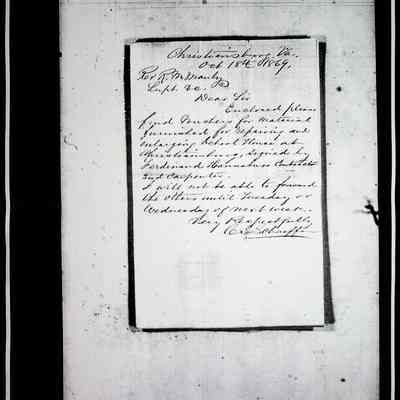 Christiansburg Va.
Oct 18th 1869,
Rev R. M. Manly
Supt. &c.
Dear Sir
Enclosed please
find Vouchers for material
furnished for repairing and
enlarging School House at
Christiansburg, signed by
Ferdinand Contractor
and Carpenter.
I will not be able to forward
the others until Tuesday or
Wednesday of next week.
Very Respectfully